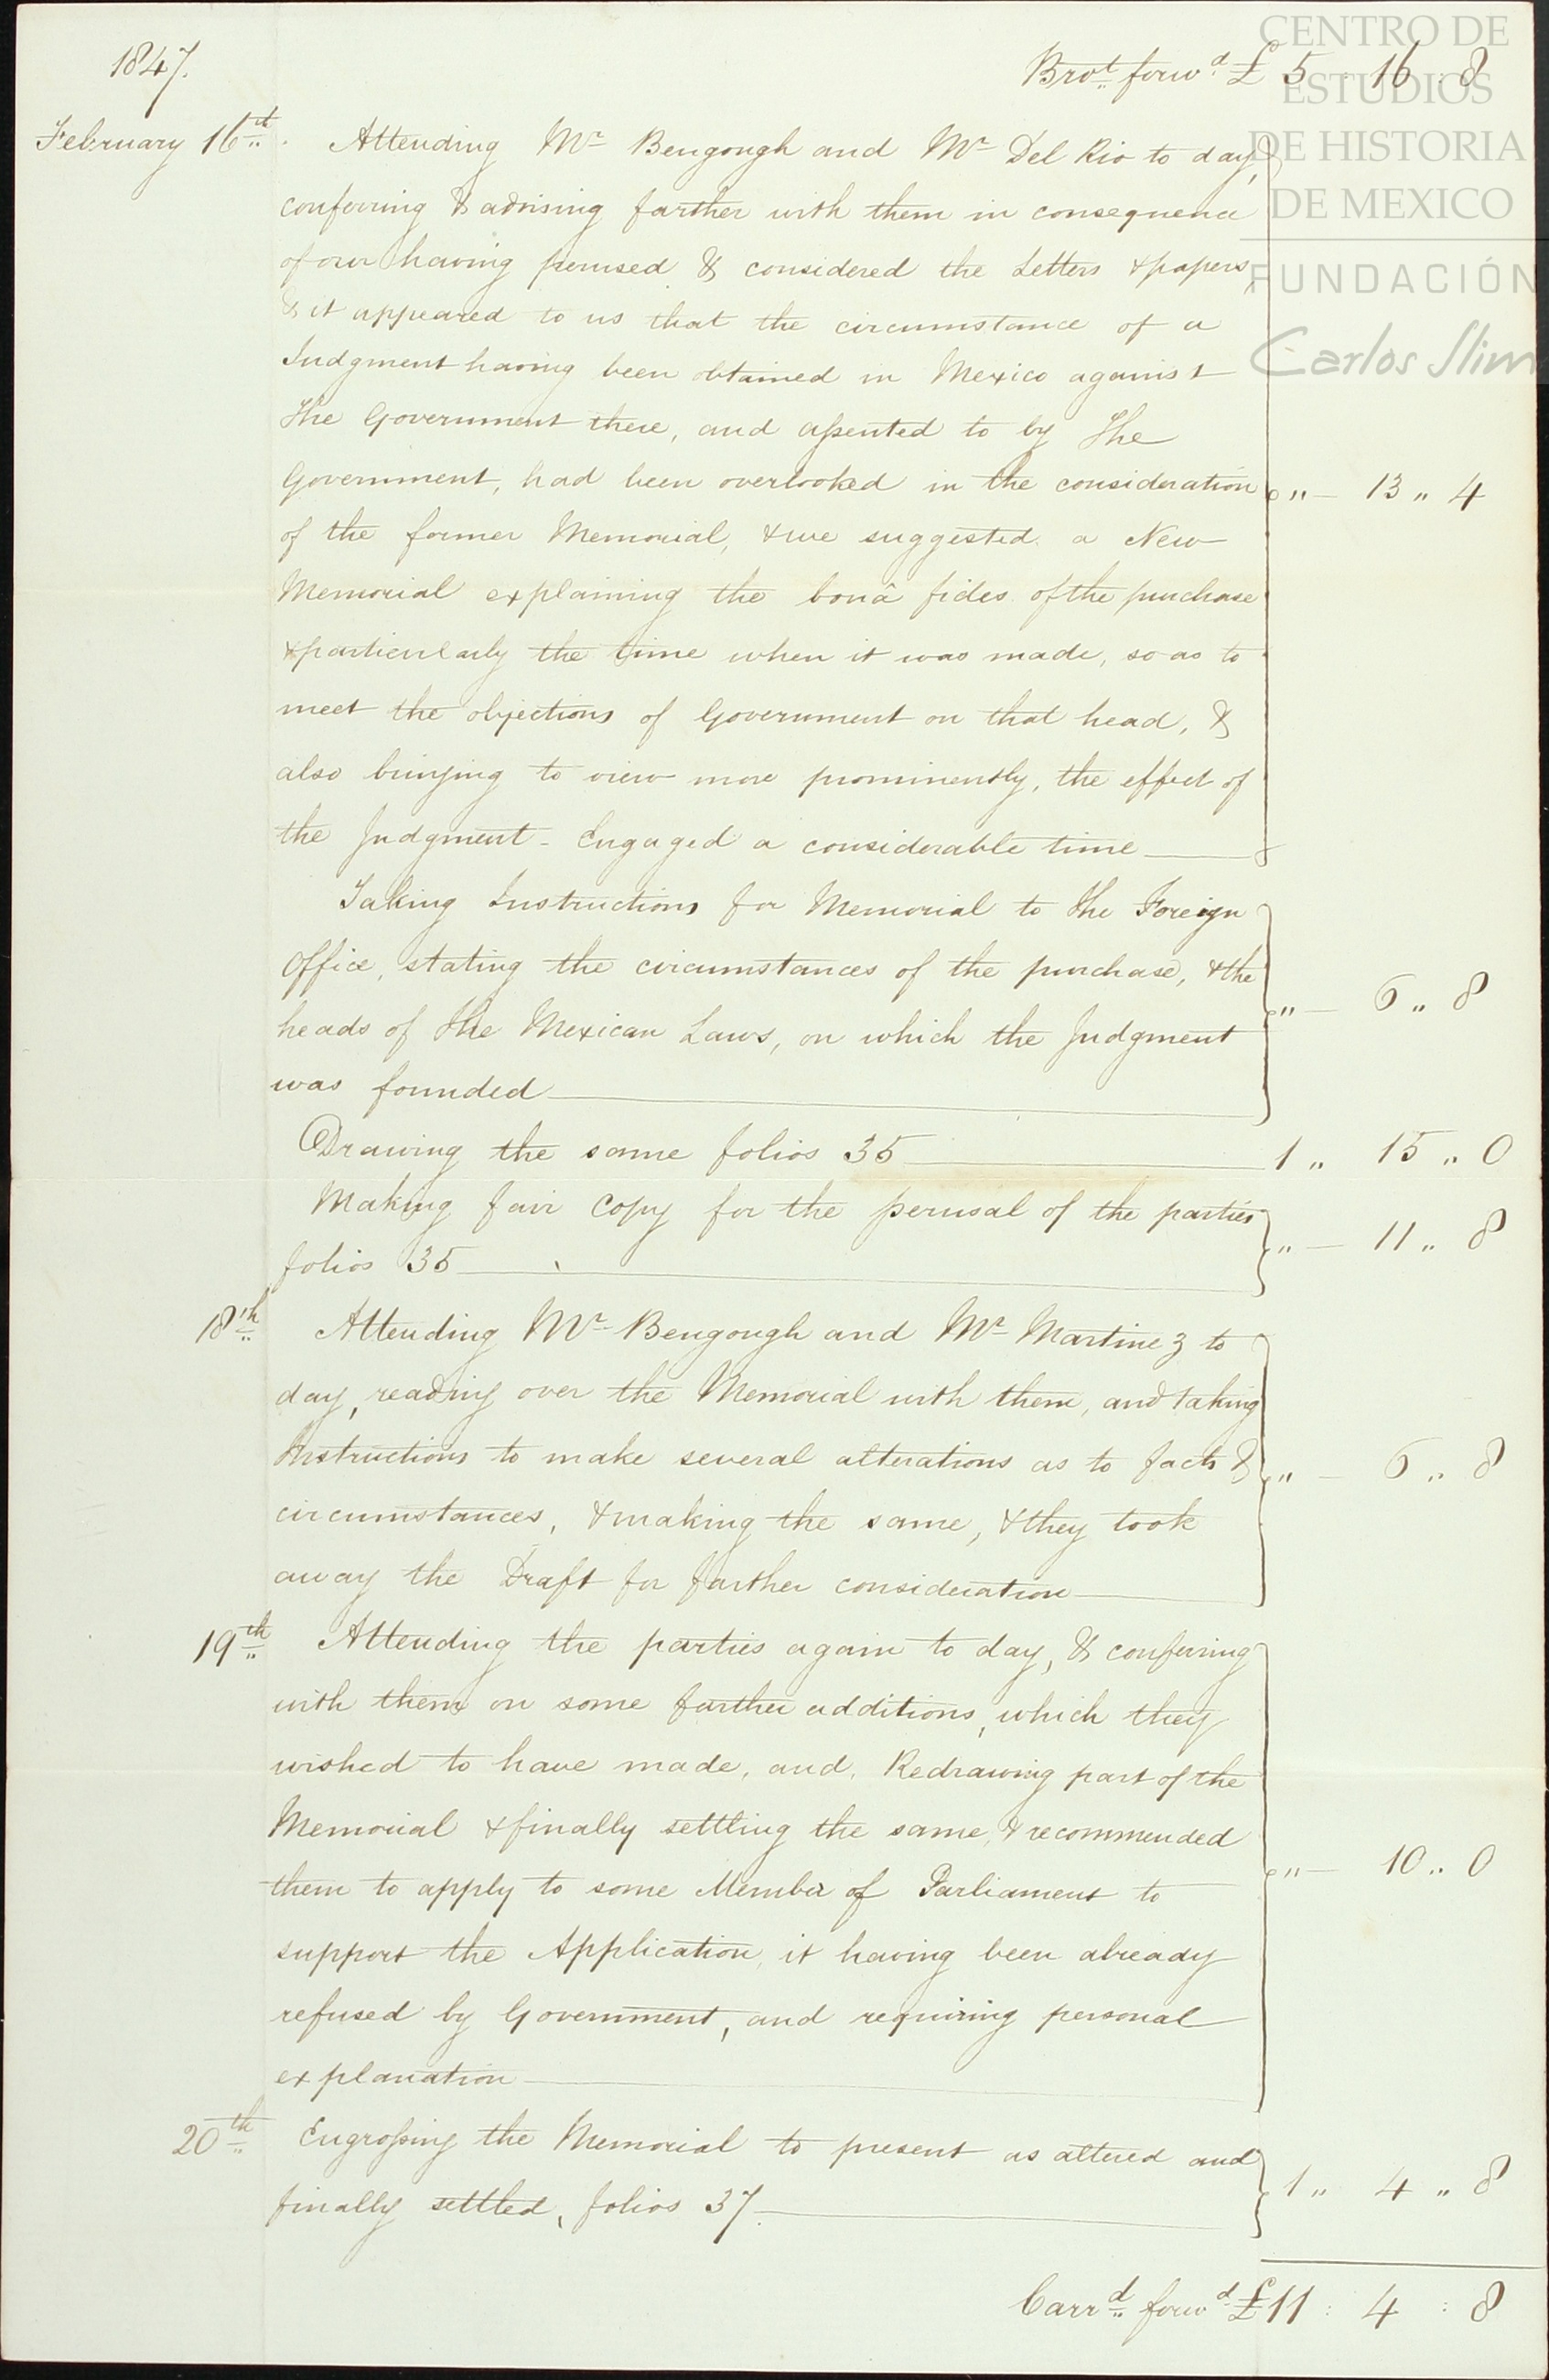 CENTRO DE
ESTUDIOS
DE HISTORIA
DE MEXICO
FUNDACIÓN
Carlos Slim
1847.
Brot. forwd. £ 5 : 16 : 8
February 16th. Attending Mr Bengough and Mr Del Rio to day,
conferring & advising farther with them in consequence
of our having perused & considered the Letters & papers,
& it appeared to us that the circumstance of a
Judgment having been obtained in Mexico against
the Government there, and assented to by the
Government, had been overlooked in the consideration " — 13 " 4
of the former Memorial, & we suggested a New
Memorial explaining the bonâ fides of the purchase
& particularly the time when it was made, so as to
meet the objections of Government on that head, &
also bringing to view more prominently, the effect of
the Judgment - Engaged a considerable time
Taking Instructions for Memorial to the Foreign
Office, stating the circumstances of the purchase, & the
heads of the Mexican Laws, on which the Judgment " — 6 " 8
was founded
Drawing the same folios 35 1 " 15 " 0
Making fair Copy for the perusal of the parties
folios 35 " — 11 " 8
18th Attending Mr Bengough and Mr Martinez to
day, reading over the Memorial with them, and taking
Instructions to make several alterations as to facts & " — 6 " 8
circumstances, & making the same, & they took
away the Draft for farther consideration
19th Attending the parties again to day, & conferring
with them on some further additions, which they
wished to have made, and, Redrawing part of the
Memorial & finally settling the same, & recommended
them to apply to some Member of Parliament to " — 10 " 0
support the Application, it having been already
refused by Government, and requiring personal
explanation
20th Engrossing the Memorial to present as altered and
finally settled, folios 37. 1 " 4 " 8
Carrd. forwd. £11 : 4 : 8